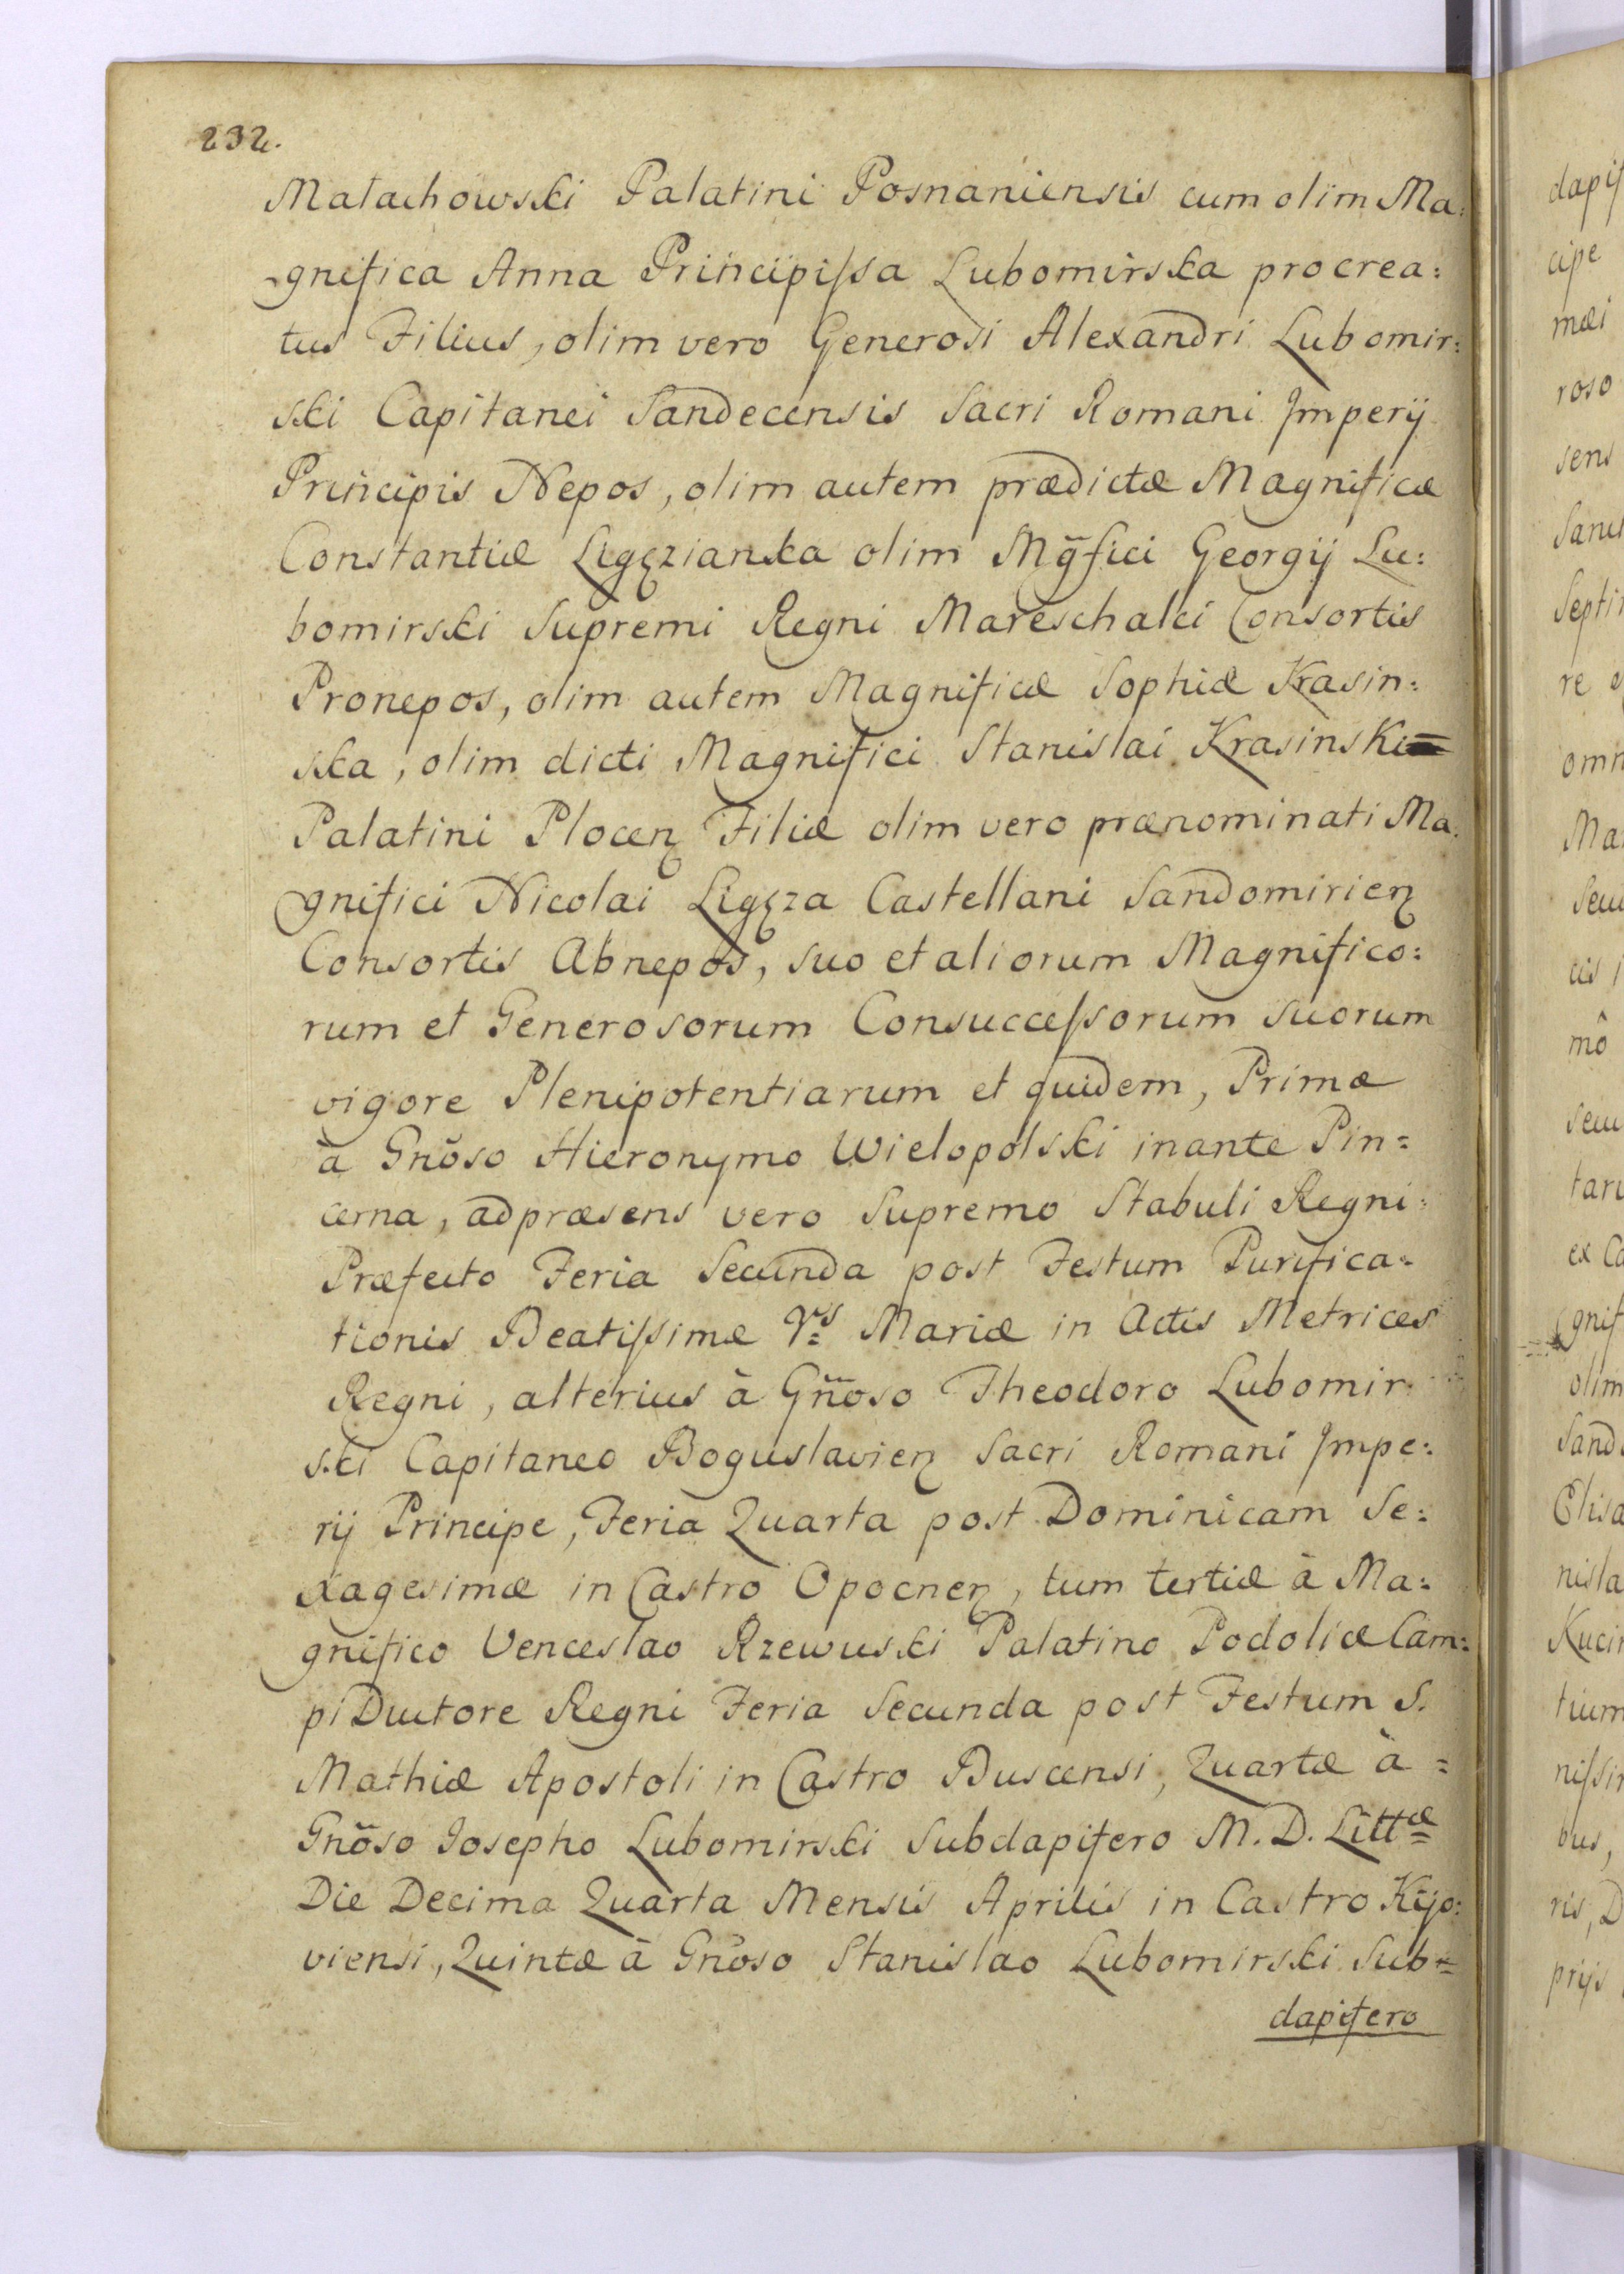 232.
Matachowski Palatini Posnaniensis cum olim Ma:
gnifica Anna Principissa Lubomirska procrea:
tus Filius, olim vero Generosi Alexandri Lubomir:
ski Capitanei Sandecensis Sacri Romani Imperij
Principis Nepos, olim autem prædictæ Magnificæ
Constantiæ Ligęzianka olim Mg̃fici Georgij Lu:
bomirski Supremi Regni Mareschalci Consortis
Pronepos, olim autem Magnificæ Sophiæ Krasin:
ska, olim dicti Magnifici Stanislai Krasinski
Palatini Plocen̄ Filiæ olim vero prænominati Ma:
gnifici Nicolai Ligęza Castellani Sandomirien̄
Consortis Abnepos, suo et aliorum Magnifico:
rum et Generosorum Consuccessorum suorum
vigore Plenipotentiarum et quidem, Primæ
à Gñoso Hieronymo Wielopolski inante Pin=
cerna, ad præsens vero Supremo Stabuli Regni
Præfecto Feria Secunda post Festum Purifica=
tionis Beatissimæ V:s Mariæ in Actis Metrices
Regni, alterius à Gñoso Theodoro Lubomir:
ski Capitaneo Boguslavien̄ Sacri Romani Impe:
rij Principe, Feria Quarta post Dominicam Se:
xagesimæ in Castro Opocnen̄, tum tertiæ à Ma=
gnifico Venceslao Rzewuski Palatino Podoliæ Cam:
pi Ductore Regni Feria Secunda post Festum S.
Mathiæ Apostoli in Castro Buscensi, Quartæ à =
Gñoso Iosepho Lubomirski Subdapifero M. D. Littæ
Die Decima Quarta Mensis Aprilis in Castro Kijo:
viensi, Quintæ à Gñoso Stanislao Lubomirski Sub=
dapifero
dapif
cipe
mæi
roso
sens
Septi
re
omn
Ma
cis
mô
ex Ca
gnif
olim
Sand
Elisa
nisla
tium
nissi
bus,
ris, D
prijs